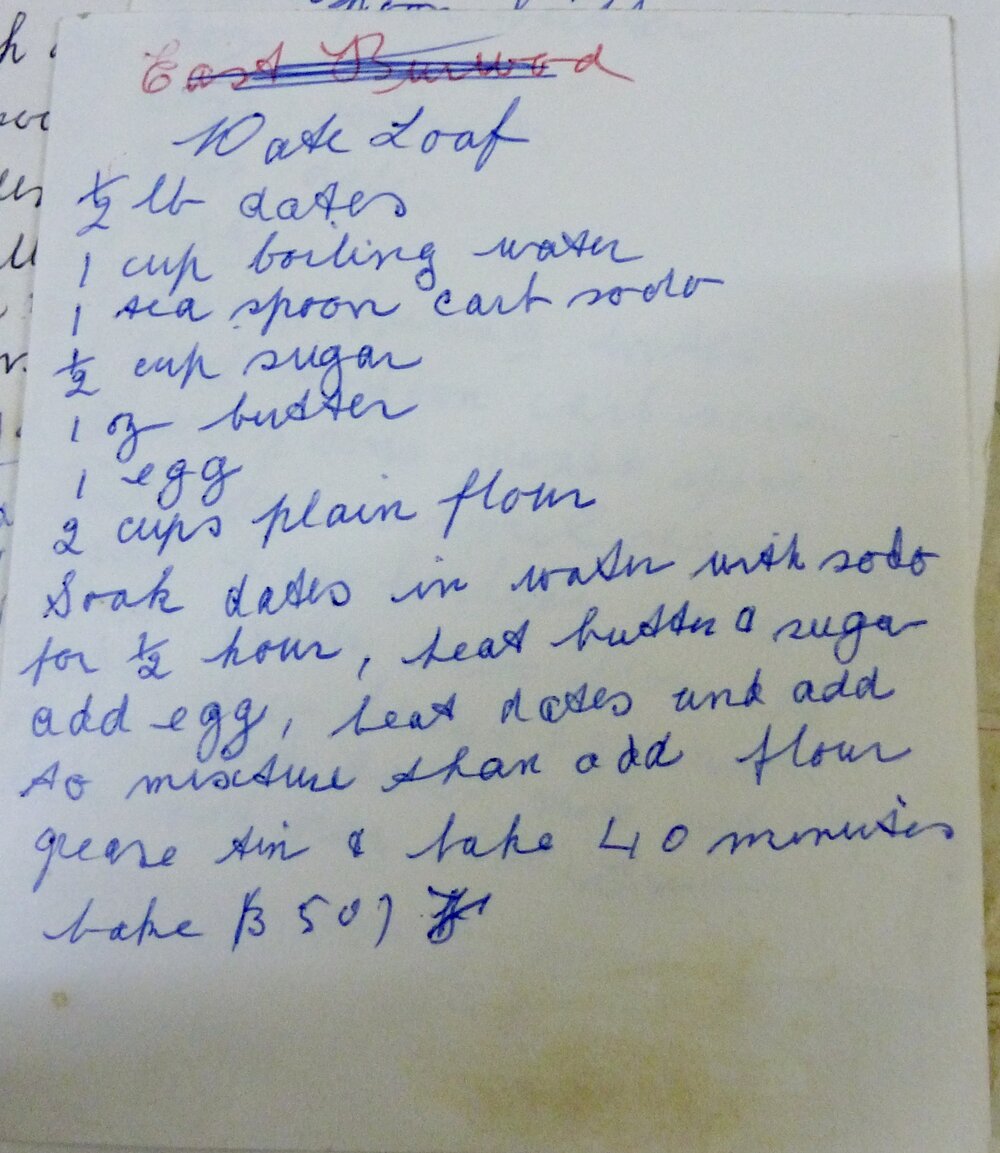 East Burwod
Date Loaf
½ lb dates
1 cup boiling water
1 tea spoon carb sodo
½ cup sugar
1 oz butter
1 egg
2 cups plain flour
Soak dates in water with sodo
for ½ hour, beat butter & sugar
add egg, beat dates and add
to mixture than add flour
grease tin & bake 40 minutes
bake 350